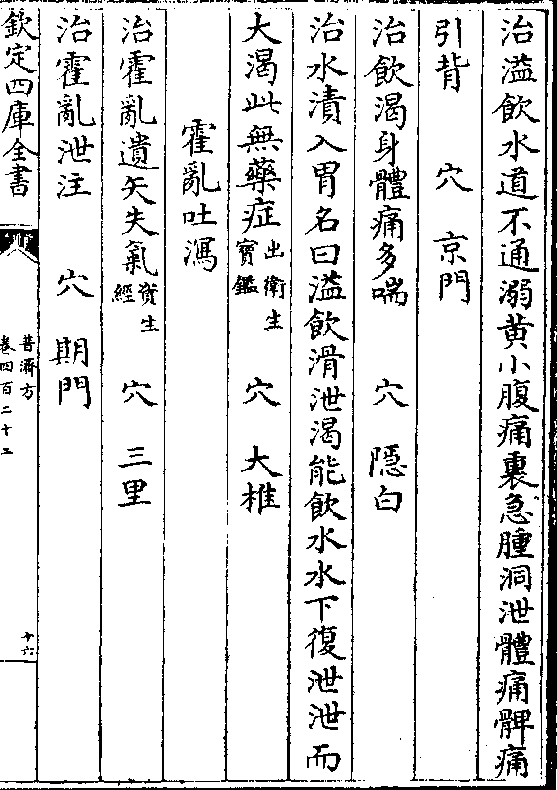 治溢飲水道不通溺黄小腹痛裏急腫洞泄體痛髀痛
引背　穴　京門
治飲渴身體痛多喘　穴　隱白
治水漬入胃名曰溢飲滑泄渴能飲水水下復泄泄而
大渴此無藥症出衛生寶鑑　穴　大椎
霍亂吐瀉
治霍亂遺矢失氣資生經　穴　三里
治霍亂泄注　穴　期門
欽定四庫全書
普濟方
卷四百二十三
十六